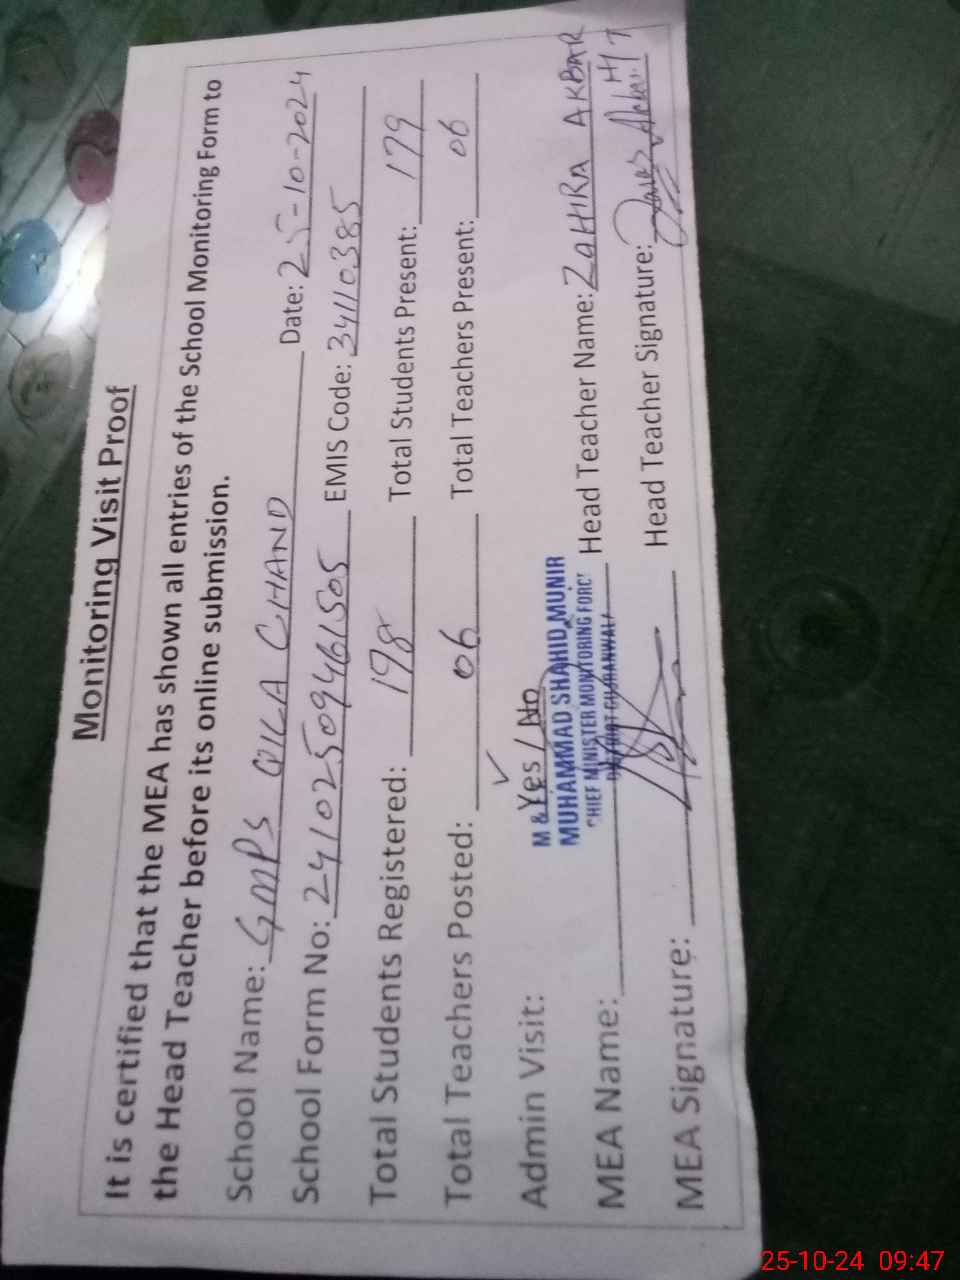 Monitoring Visit Proof
It is certified that the MEA has shown all entries of the School Monitoring Form to
the Head Teacher before its online submission.
School Name: GMPS QILA CHAND Date: 25-10-2024
School Form No: 24102509461505 EMIS Code: 34110385
Total Students Registered: 198 Total Students Present: 179
Total Teachers Posted: 06 Total Teachers Present: 06
Admin Visit: Yes / No
M &
MUHAMMAD SHAHID MUNIR
CHIEF MINISTER MONITORING FORCE
DISTRICT GUJRANWALA
MEA Name: Head Teacher Name: ZAHIRA AKBAR
MEA Signature: Head Teacher Signature: H/T
25-10-24 09:47